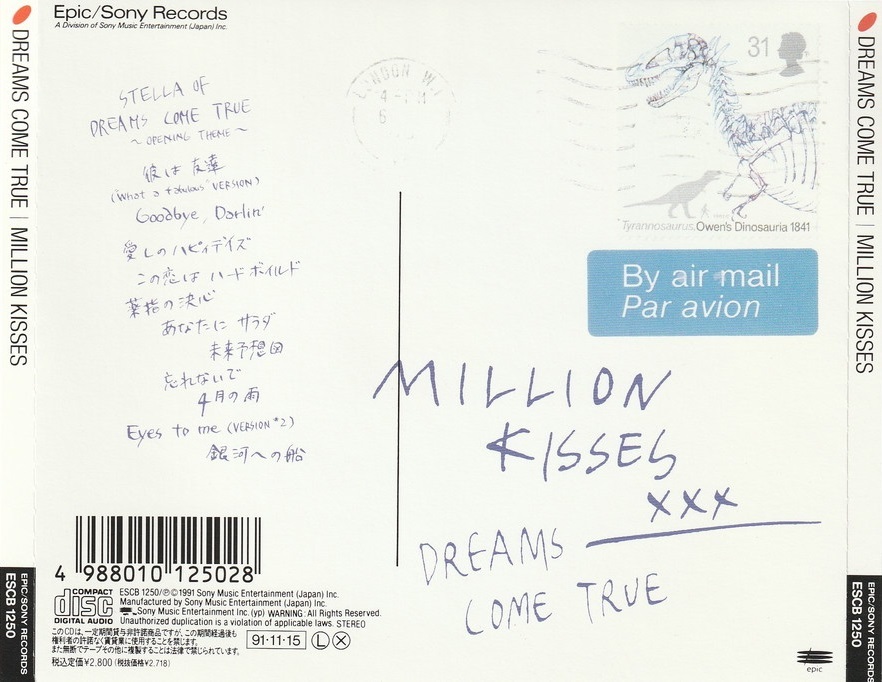 DREAMS COME TRUE | MILLION KISSES
EPIC/SONY RECORDS
ESCB 1250
Epic/Sony Records
A Division of Sony Music Entertainment (Japan) Inc.
STELLA OF
DREAMS COME TRUE
~ OPENING THEME ~
彼は友達
("What a fabulous" VERSION)
Goodbye, Darlin'
愛しのハピィデイズ
この恋はハードボイルド
薬指の決心
あなたにサラダ
未来予想図
忘れないで
4月の雨
Eyes to me (VERSION *2)
銀河への船
4 988010 125028
COMPACT
disc
DIGITAL AUDIO
ESCB 1250/Ⓟ©1991 Sony Music Entertainment (Japan) Inc.
Manufactured by Sony Music Entertainment (Japan) Inc.
Sony Music Entertainment Inc. (yp) WARNING: All Rights Reserved.
Unauthorized duplication is a violation of applicable laws. STEREO
このCDは、一定期間貸与非許諾商品ですが、この期間経過後も
権利者の許諾なく賃貸業に使用することを禁じます。
また無断でテープその他に複製することは法律で禁じられています。
税込定価¥2,800 (税抜価格¥2,718)
91·11·15 Ⓛ Ⓧ
LONDON W1
4 -
6
31
Tyrannosaurus. Owen's Dinosauria 1841
By air mail
Par avion
MILLION
KISSES
XXX
DREAMS
COME TRUE
epic
DREAMS COME TRUE | MILLION KISSES
EPIC/SONY RECORDS
ESCB 1250